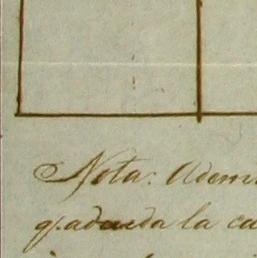 Nota: Adem
q.adeuda la ca